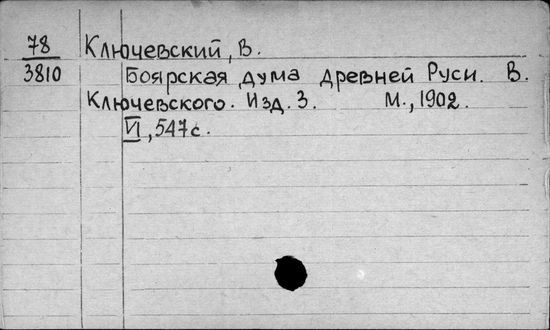 78 Ключевский, В.
3810 Боярская дума древней Руси. В.
Ключевского. Изд. 3. М., 1902.
VI, 547с.